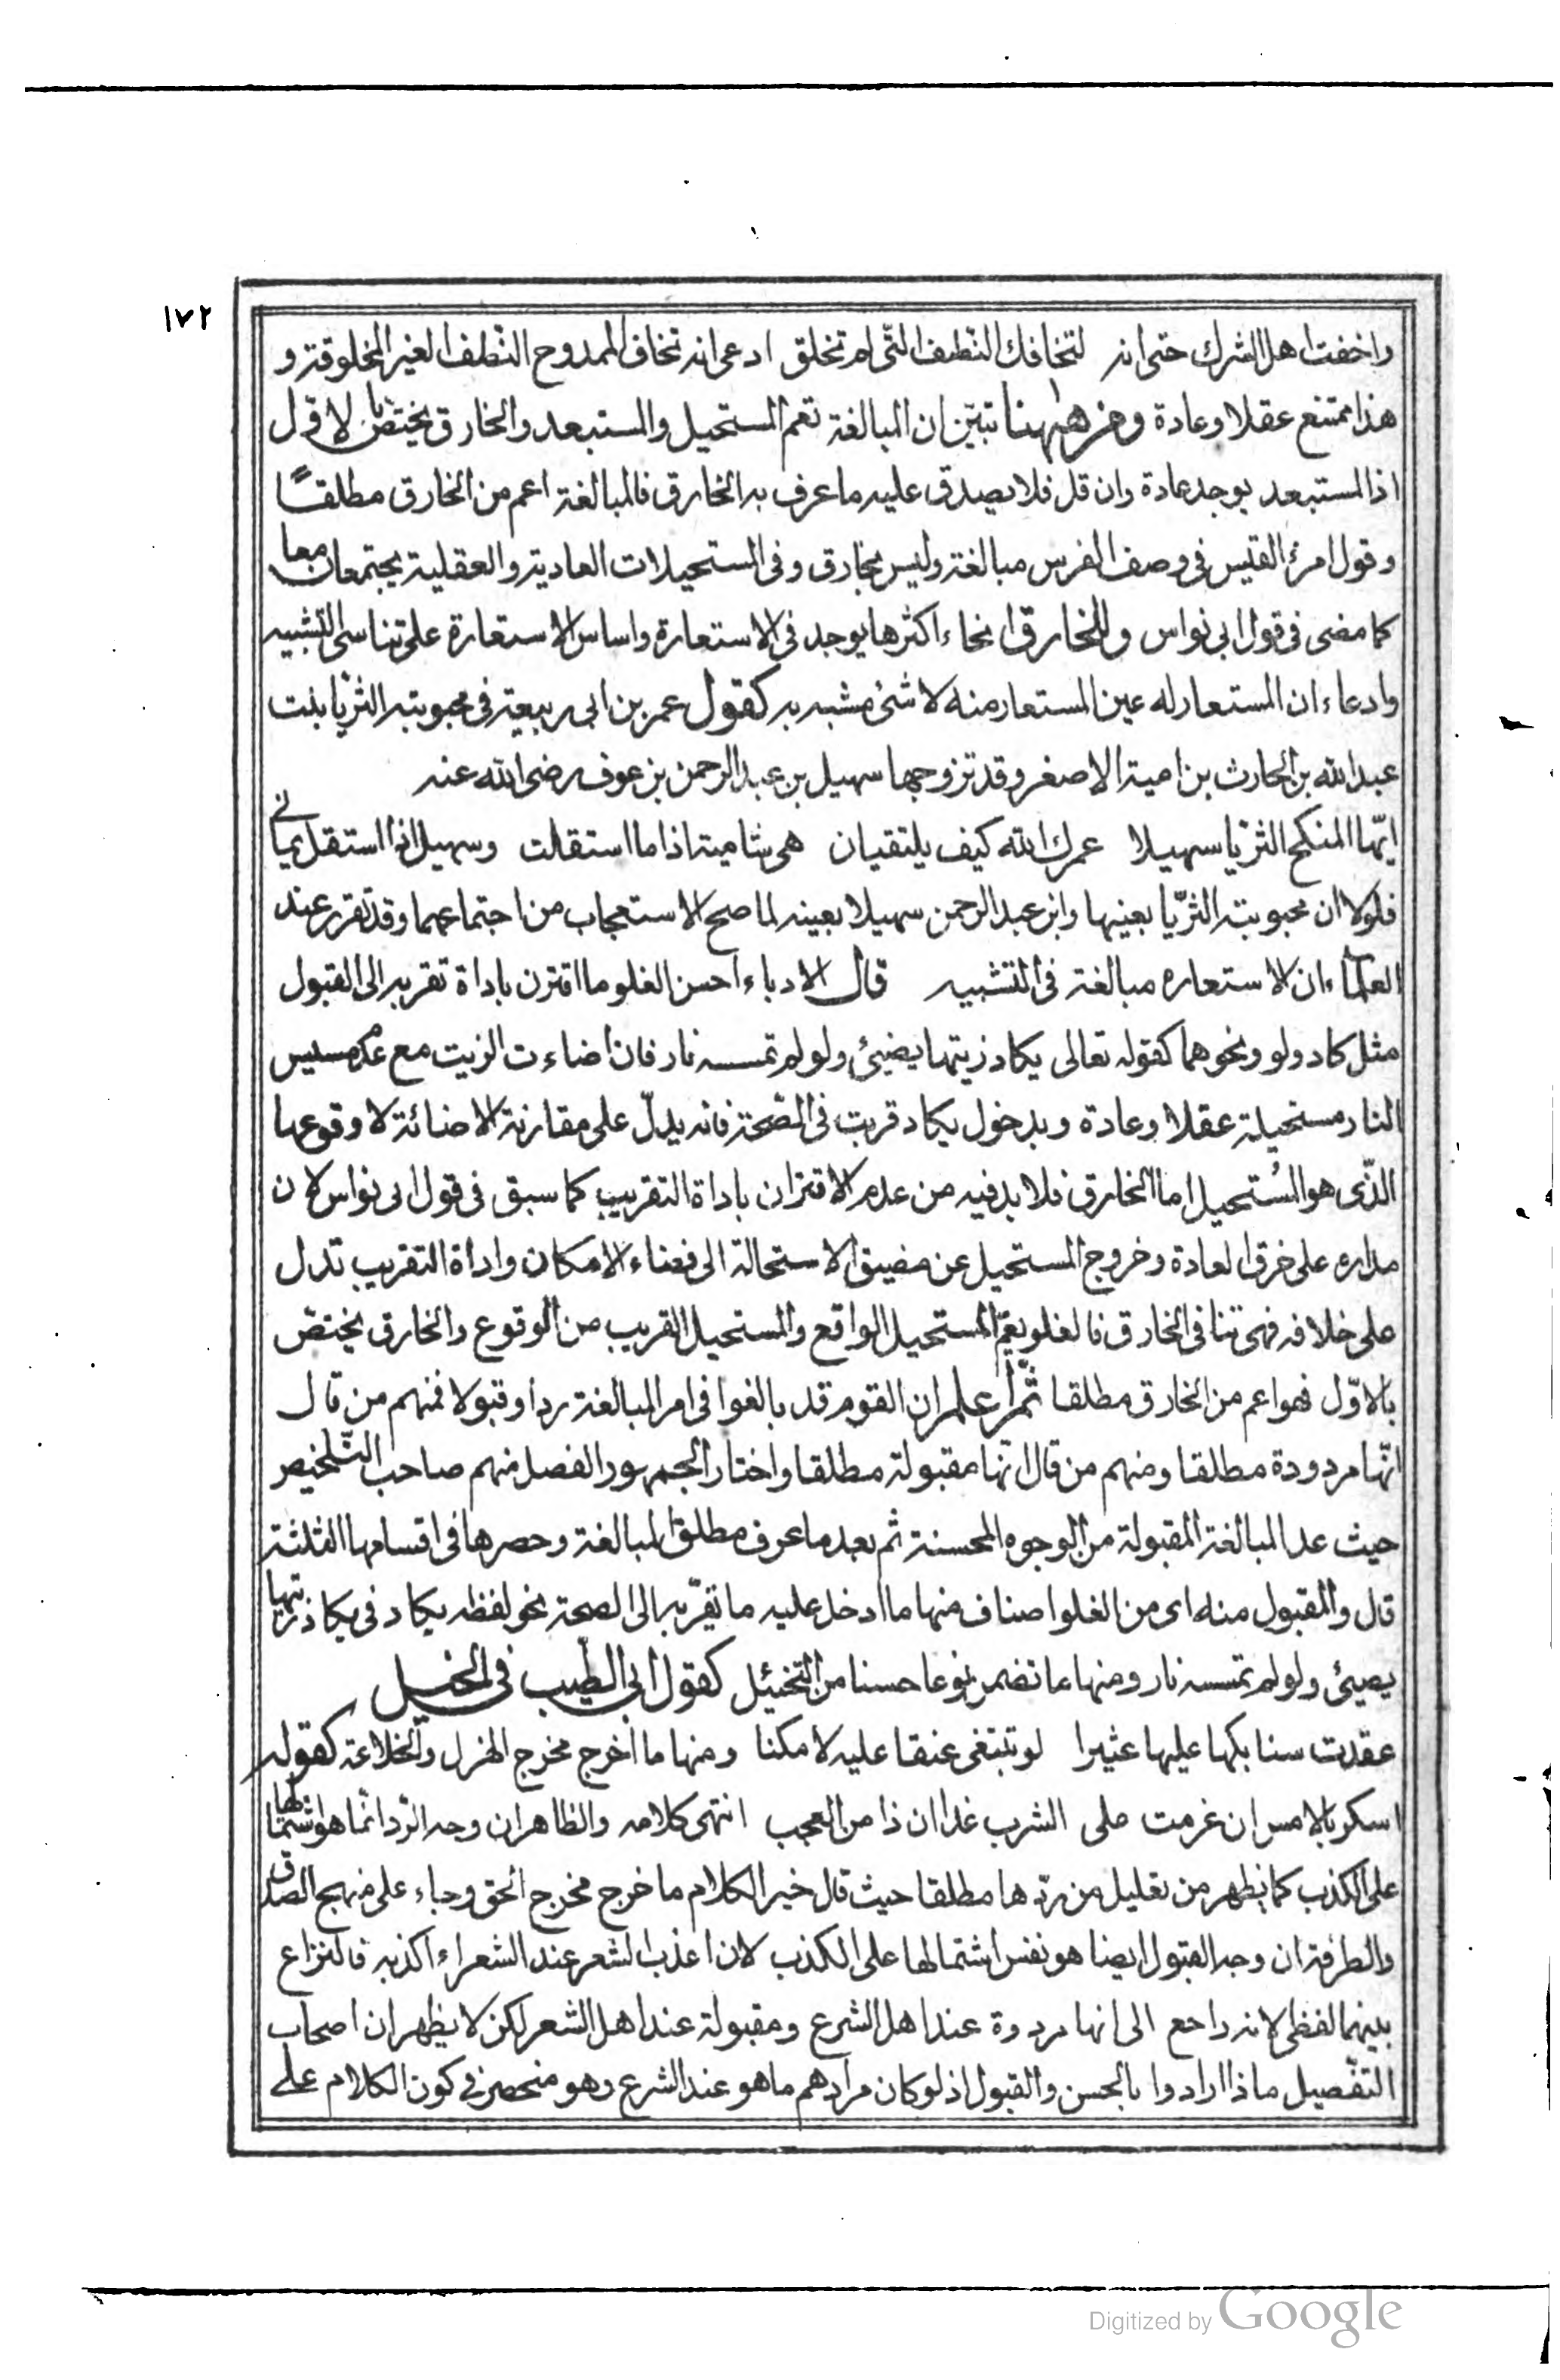 ١٧٢
واخفت اهل الشرك حتى انه لتخافك النطف التى لم تخلق ادعى انه تخاف الممدوح النطف الغير المخلوقة و
هذا ممتنع عقلا وعادة ومن ههنا تبيّن ان المبالغة تعم المستحيل والمستبعد والخارق يختص بالاول
اذ المستبعد يوجد عادة وان قل فلا يصدق عليه ما عرف به الخارق فالمبالغة اعم من الخارق مطلقًا
وقول امرئ القيس فى وصف الفرس مبالغة وليس بخارق وفى المستحيلات العادية والعقلية يجتمعان معا
كما مضى فى قول ابى نواس وللخارق انحاء اكثرها يوجد فى الاستعارة واساس الاستعارة على تناسى التشبيه
وادعاء ان المستعار له عين المستعار منه لا شئ مشبه به كقول عمر بن ابى ربيعة فى محبوبته الثريا بنت
عبد الله بن الحارث بن امية الاصغر وقد تزوجها سهيل بن عبد الرحمن بن عوف رضى الله عنه
ايّها المنكح الثريا سهيلا عمرك الله كيف يلتقيان هى شامية اذا ما استقلت وسهيل اذا استقل يمانى
فلولا ان محبوبته الثريّا بعينها وابن عبد الرحمن سهيلا بعينه لما صح الاستعجاب من اجتماعهما وقد تقرر عند
العلماء ان الاستعاره مبالغة فى التشبيه قال الادباء احسن الغلو ما اقترن باداة تقربه الى القبول
مثل كاد ولو ونحوهما كقوله تعالى يكاد زيتها يضيئ ولو لم تمسسه نار فان اضاءت الزيت مع عدم مسيس
النار مستحيلة عقلا وعادة وبدخول يكاد قربت فى الصّحة فانه يدلّ على مقارنة الاضائة لا وقوعها
الذّى هو المُستحيل اما الخارق فلا بد فيه من عدم الاقتران باداة التقريب كما سبق فى قول ابى نواس لان
مداره على خرق العادة وخروج المستحيل عن مضيق الاستحالة الى فضاء الامكان واداة التقريب تدل
على خلافه فهى تنافى الخارق فالغلو يعمّ المستحيل الواقع والمستحيل القريب من الوقوع والخارق يختصّ
بالاوّل فهو اعم من الخارق مطلقا ثمّ اعلم ان القوم قد بالغوا فى امر المبالغة ردا وقبولا فمنهم من قال
انّها مردودة مطلقا ومنهم من قال انّها مقبولة مطلقا واختار الجمهور الفصل منهم صاحب التّلخيص
حيث عد المبالغة المقبولة من الوجوه المحسنة ثم بعد ما عرف مطلق المبالغة وحصرها فى اقسامها الثلثة
قال والمقبول منه اى من الغلو اصناف منها ما ادخل عليه ما تقرّبه الى الصحة نحو لفظه يكاد فى يكاد زيتها
يضيئ ولو لم تمسسه نار ومنها ما تضمن نوعا حسنا من التخئيل كقول ابى الطيب فى الخيل
عقدت سنابكها عليها عثيرا لو تبتغى عنقا عليه لامكنا ومنها ما اخرج مخرج الهزل والخلاعة كقوله
اسكر بالامس ان عزمت على الشرب غدا ان ذا من العجب انتهى كلامه والظاهر ان وجه الرّد انّما هو اشتمالها
على الكذب كما يظهر من تعليل من ردّها مطلقا حيث قال خير الكلام ما خرج مخرج الحق وجاء على منهج الصدق
والطرفة ان وجه القبول ايضا هو نفس اشتمالها على الكذب لان اعذب الشعر عند الشعراء اكذبه فالنزاع
بينهما لفظى لانه راجع الى انها مردودة عند اهل الشرع ومقبولة عند اهل الشعر لكن لا يظهر ان اصحاب
التفّصيل ماذا ارادوا بالحسن والقبول اذ لو كان مرادهم ما هو عند الشرع وهو منحصر فى كون الكلام على
Digitized by Google